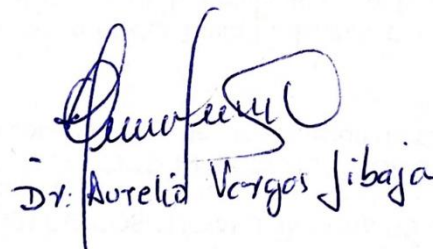 Dr: Aurelio Vargas Jibaja